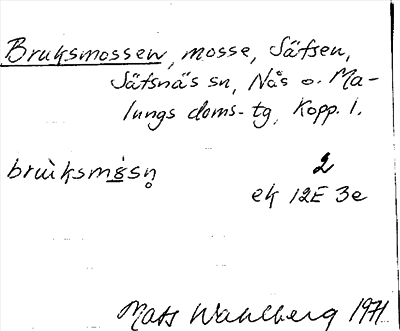 Bruksmossen, mosse, Säfsen,
Säfsnäs sn, Nås o. Ma-
lungs doms-tg, Kopp. l.
bruìksmås̀n̥ 2
ek 12E 3e
Mats Wahlberg 1971